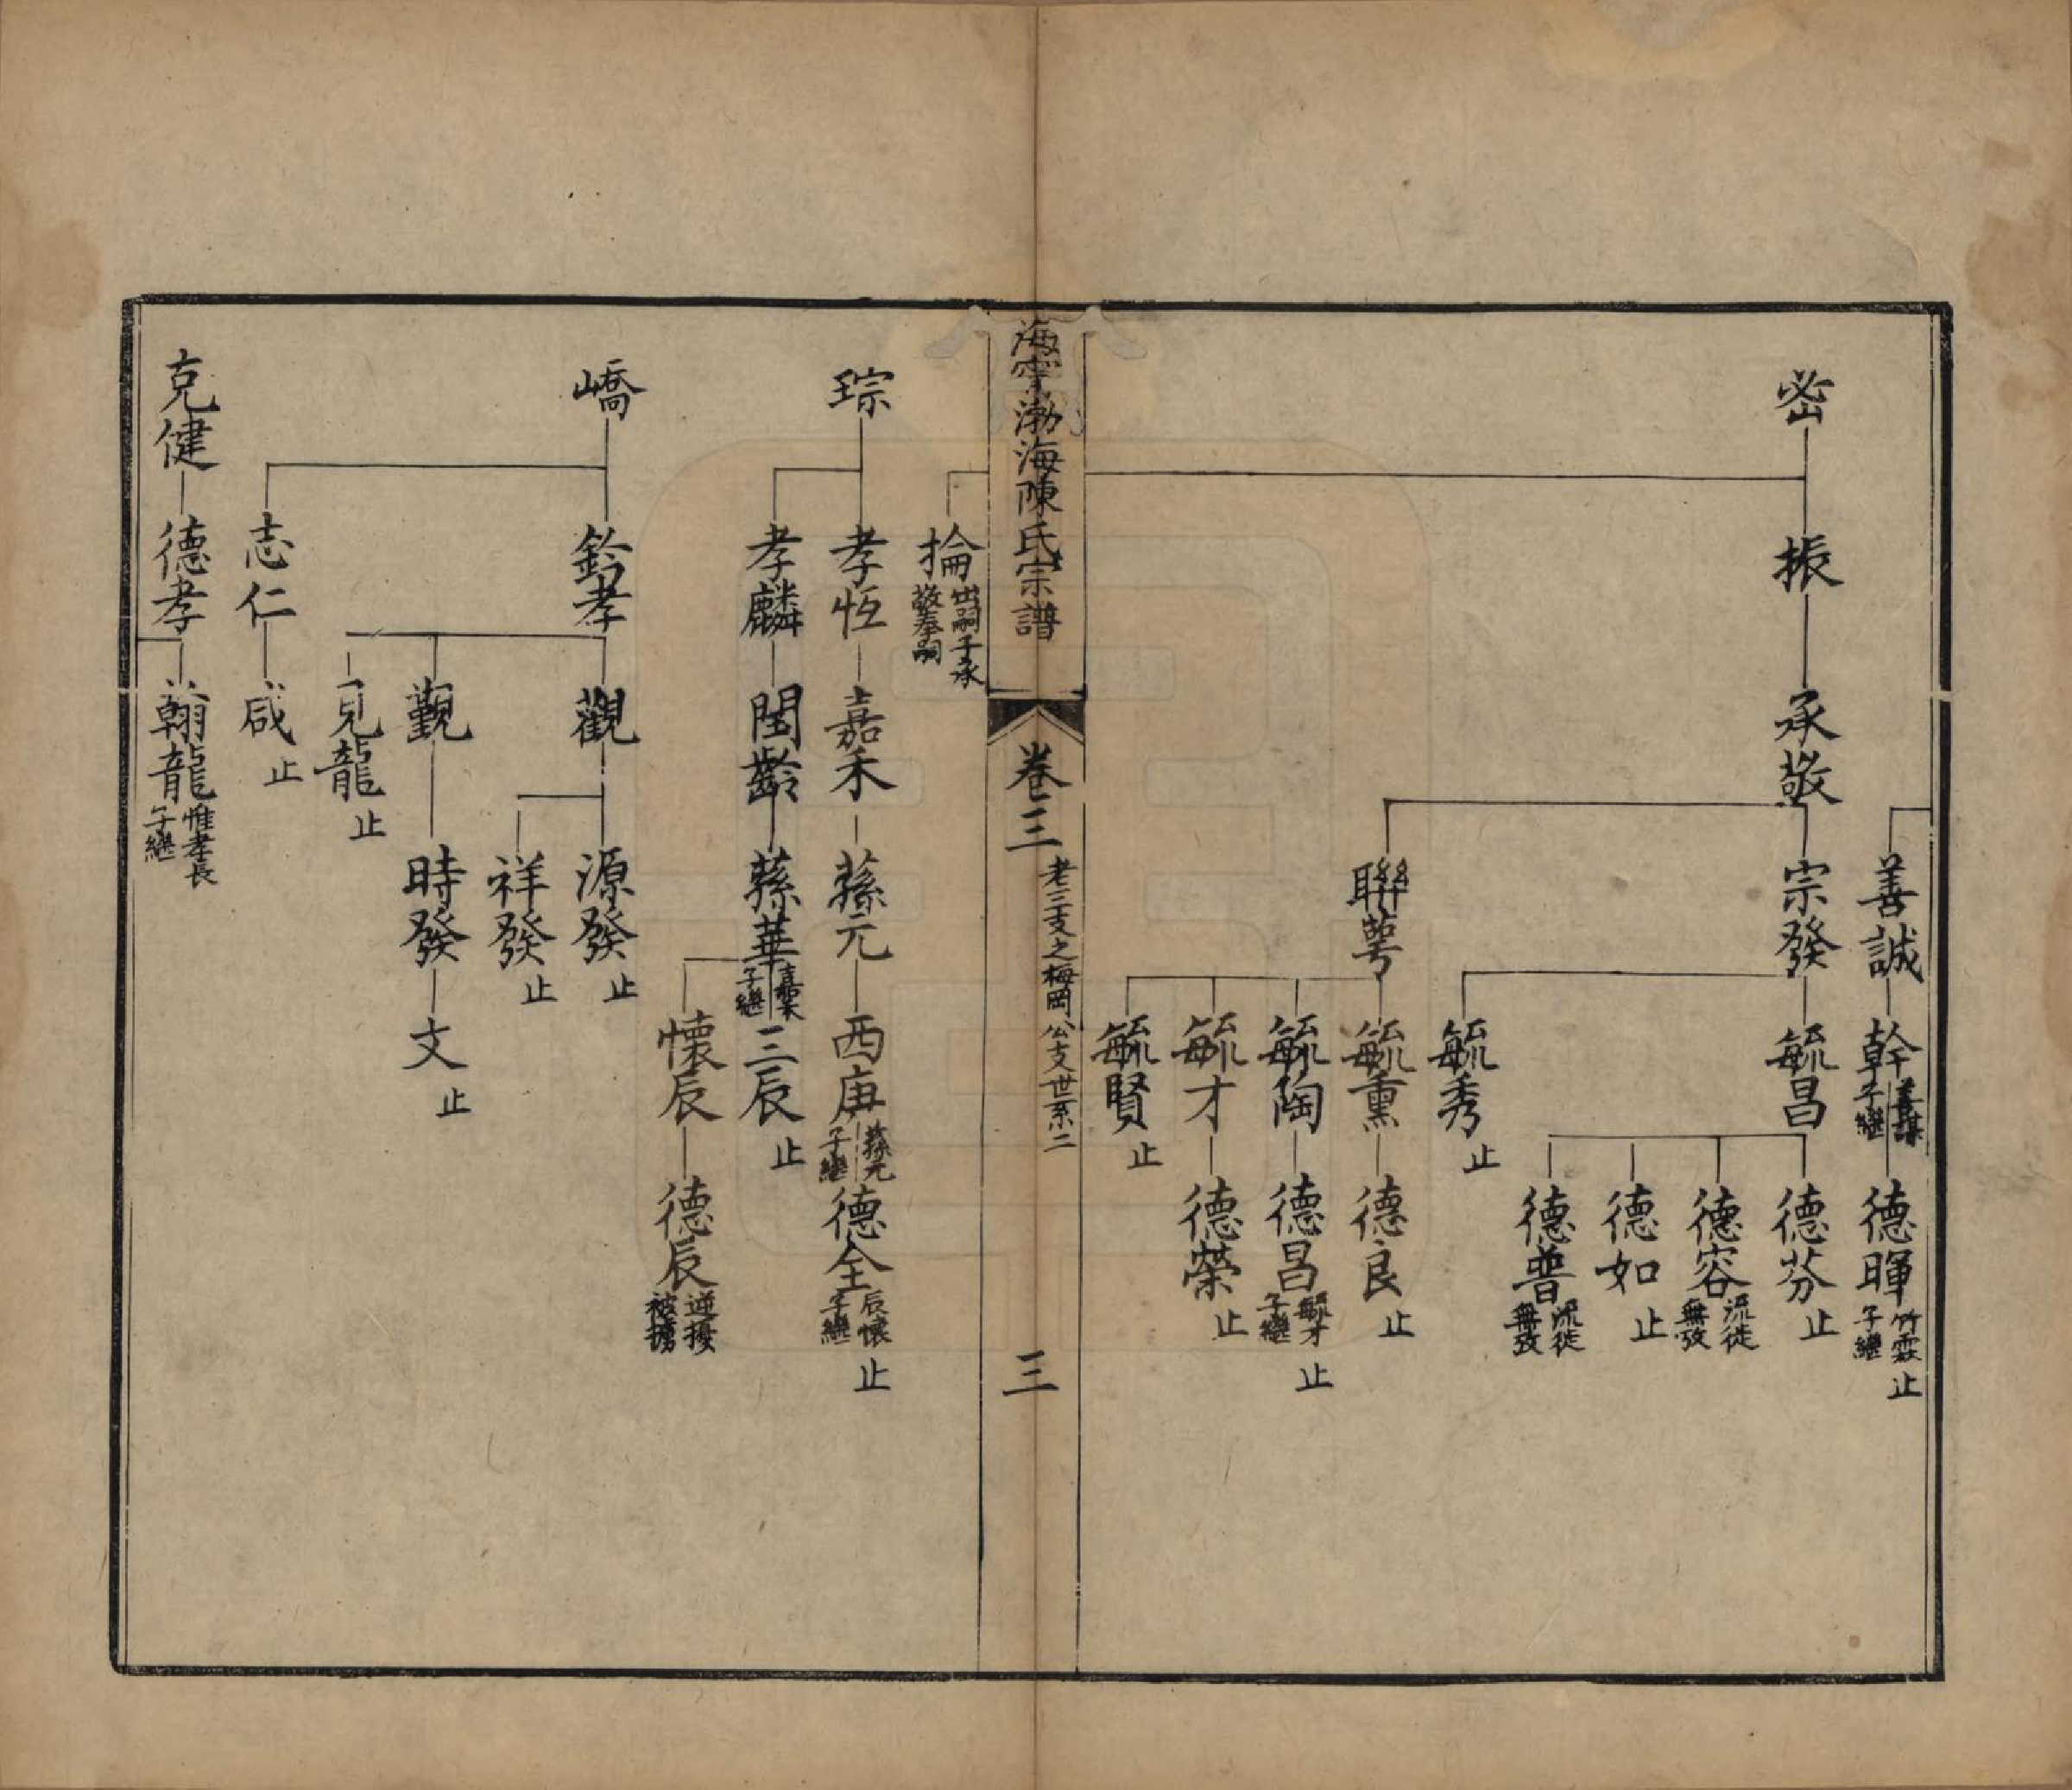 善誠
幹
善謀
子繼
德暉
竹霖
子繼
止
密
振
承敬
宗發
毓昌
德芬
止
德容
流徙
無攷
德如
止
德普
流徙
無攷
毓秀
止
聯萼
毓熏
德良
止
毓陶
德昌
毓才
子繼
止
毓才
德榮
止
毓賢
止
海寧渤海陳氏宗譜
卷三
老三支之梅岡公支世系二
三
掄
出嗣子承
敬奉嗣
琮
孝恆
嘉禾
蓀元
西庚
蓀元
子繼
德全
辰懷
子繼
止
孝麟
閏齡
蓀華
嘉禾
子繼
三辰
止
懷辰
德辰
逆擾
被擄
嶠
鈴孝
觀
源發
止
祥發
止
覲
時發
文
止
見龍
止
志仁
咸
止
克健
德孝
翰龍
惟孝長
子繼